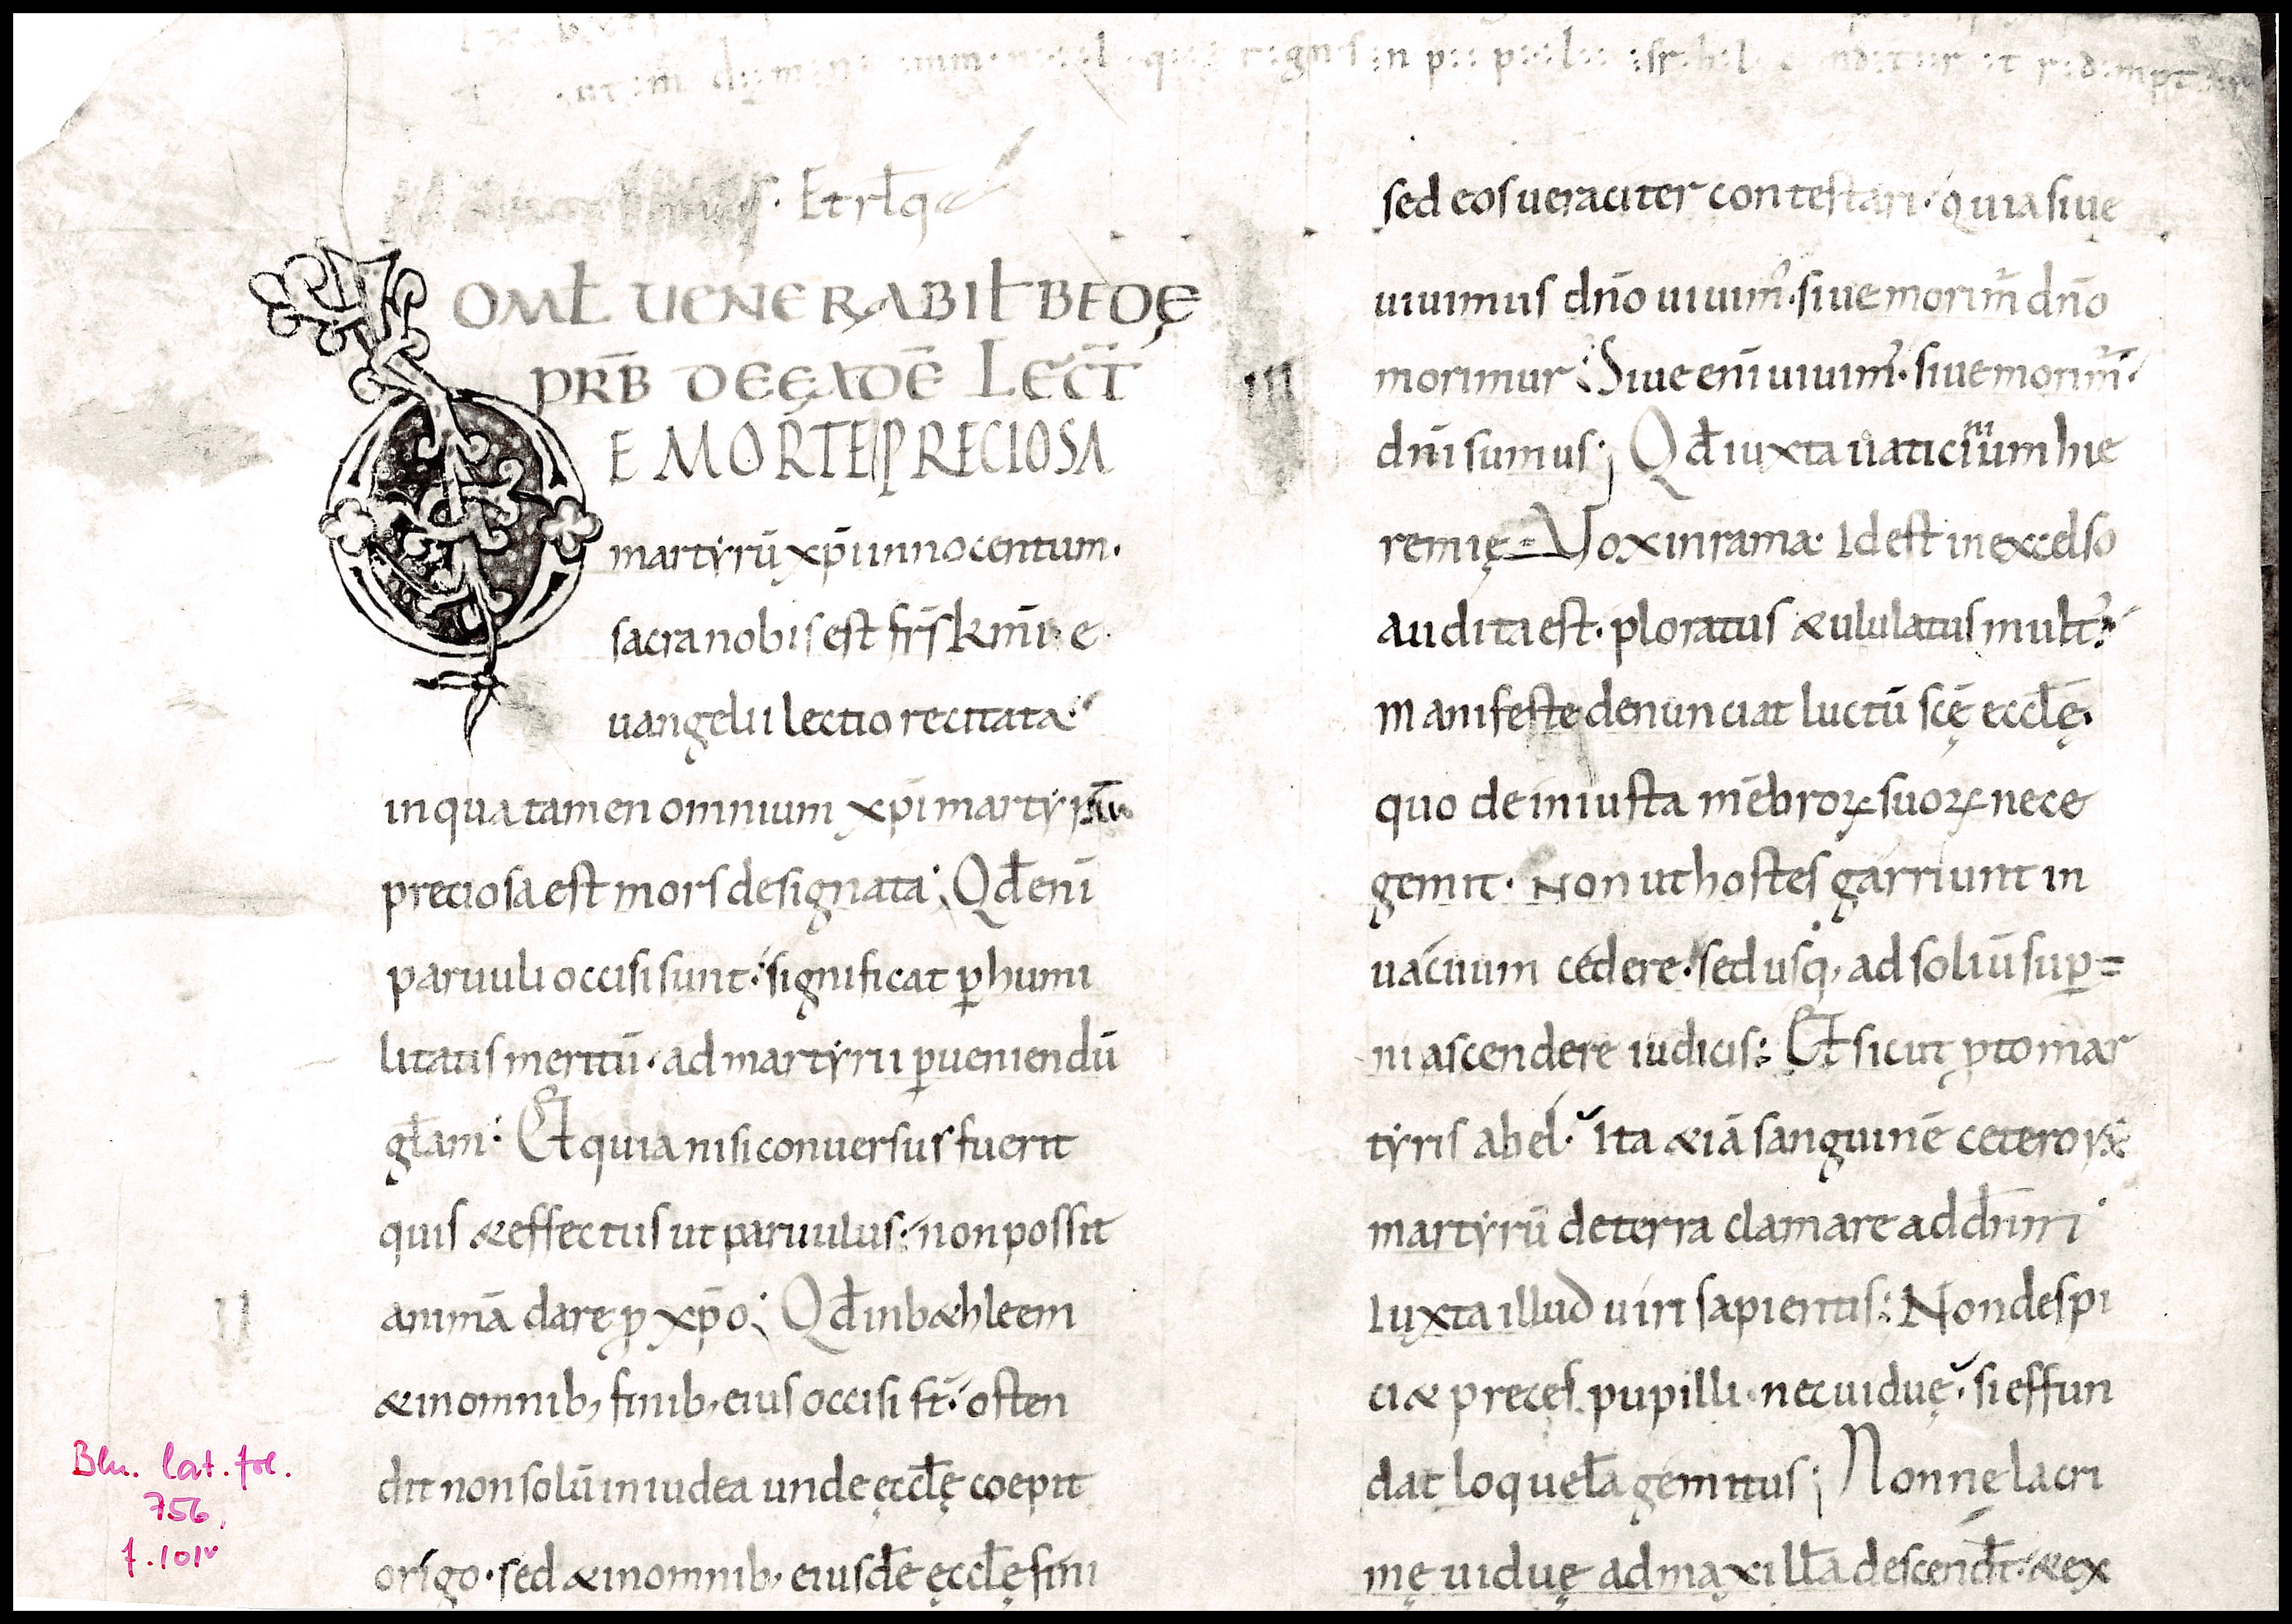 Et rłq
OMŁ UENERABIŁ BEDĘ
PRB̄ DE EADĒ LECT̄
DE MORTE PRECIOSA
martyrū xp̄i innocentum·
sacra nobis est frs̄ km̄i· e
uangelii lectio recitata
in qua tamen omnium xp̄i martyrū
preciosa est mors designata; Qđ eni̅
paruuli occisi sunt· significat ꝑ humi
litatis meritū· ad martyrii ꝑueniendū
głam· Et quia nisi conuersus fuerit
quis & effectus ut paruulus· non possit
animā dare ꝓ xp̄o; Qđ in b&hleem
& in omnib; finib; eius occisi st̄· osten
dit non solū in iudea unde ęccłę coepit
origo· sed & in omnib; eiusdē ęccłę fini
II
sed eos ueraciter contestari· quia siue
uiuimus dn̄o uiuim᷒· siue morim᷒ dn̄o
III
morimur; Siue eni̅ uiuim᷒· siue morim᷒·
dn̄i sumus; Qđ iuxta uaticinium hie
remię· Vox in rama· Id est in excelso
audita est· ploratus & ululatus mult᷒·
manifeste denunciat luctū scę̄ eccłę·
quo de iniusta mēbroꝝ suoꝝ nece
gemit· Non ut hostes garriunt in
uacuum cedere· sed usq; ad soliū suꝑ=
ni ascendere iudicis; Et sicut ꝓtomar
tyris abel· ita &iā sanguinē ceteroꝝ
martyrū de terra clamare ad dn̄m
Iuxta illud uiri sapientis; Non despi
ci& preces pupilli· nec uiduę· si effun
dat loquełā gemitus; Nonne lacri
mę uiduę ad maxillā descendt̄· & ex
Bln. lat. fol.
756,
f. 101v